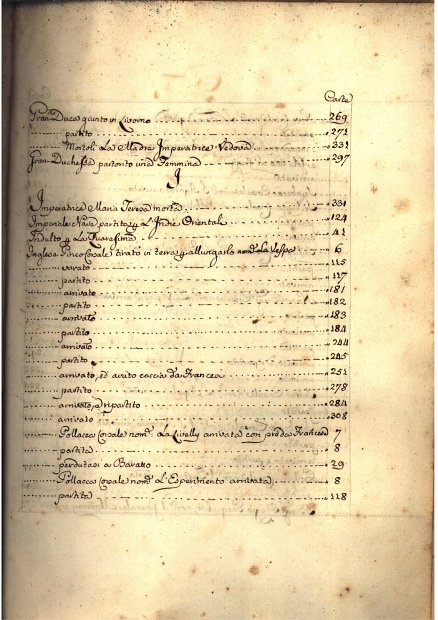 Carte
Gran Duca giunto in Livorno 269
partito 271
Mortoli La Madre Imperatrice Vedova 331
Gran Duchessa partorito una Femmina 297
I
Imperatrice Maria Teresa morta 331
Imperiale Nave partita p L'Indie Orientali 124
Indulto p La Quaresima 41
Inglese Pinco Corsale tirato in terra p allungarlo nom.º La Vespa 6
varato 115
partito 117
arrivato 181
partito 182
arrivato 183
partito 184
arrivato 244
partito 245
arrivato, ed avuto caccia da Francesi 251
partito 278
arrivato, e ripartito 284
arrivato 308
Pollacca Corsale nom.ª La arrivata con preda Francese 7
partita 8
perdutasi a Baratto 29
Pollacca Corsale nom.ª L'Esperimento arrivata 8
partita 118